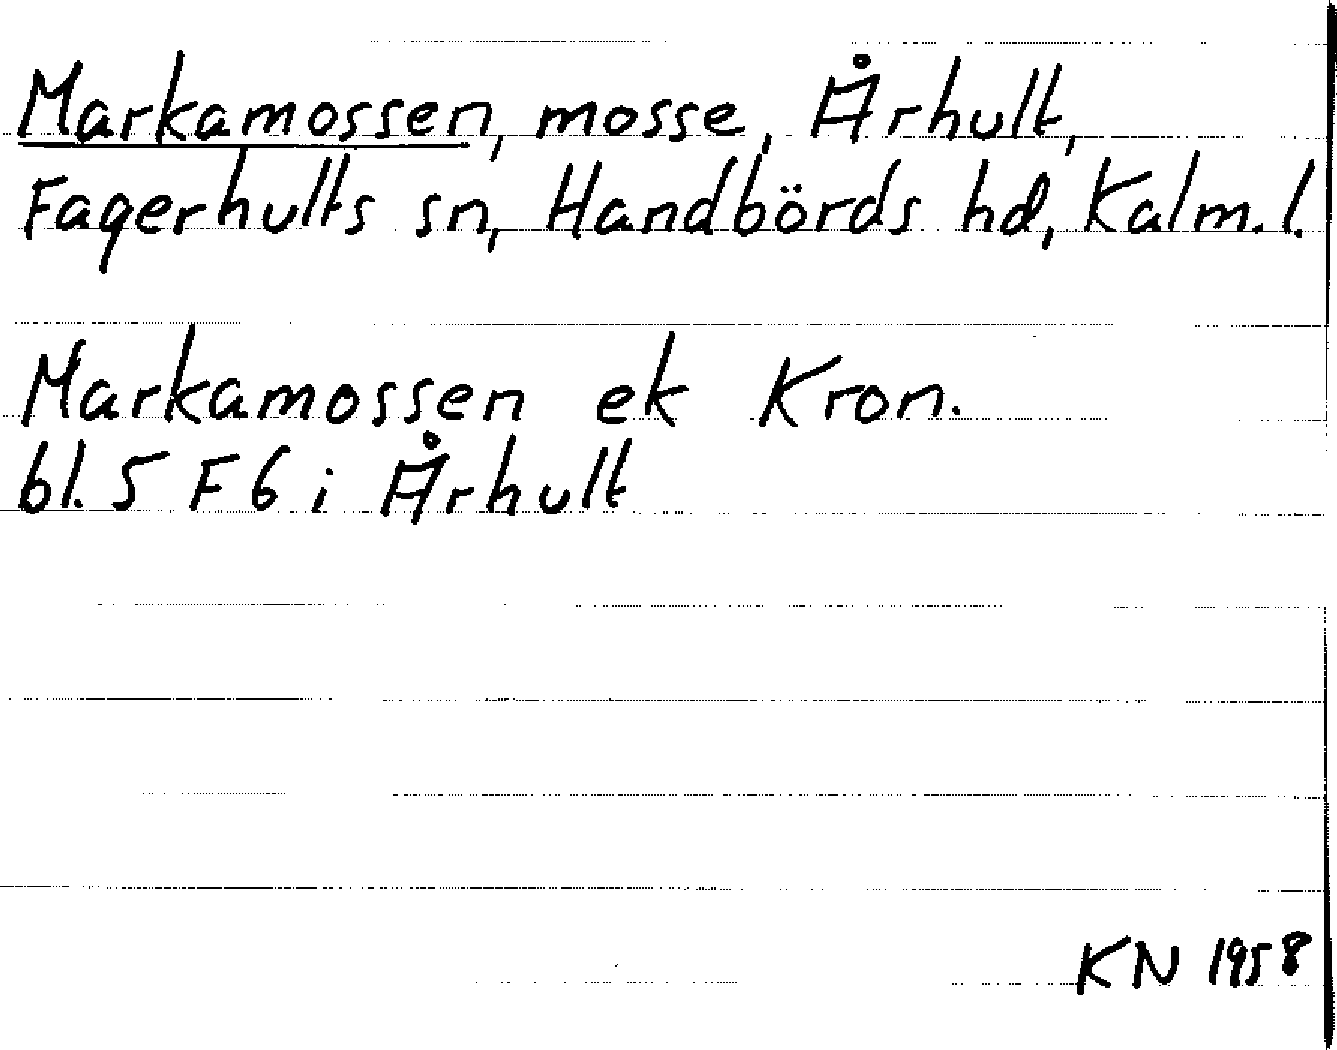 Markamossen, mosse, Århult,
Fagerhults sn, Handbörds hd, Kalm. l.
Markamossen ek Kron.
bl. 5 F 6 i Århult
KN 1958